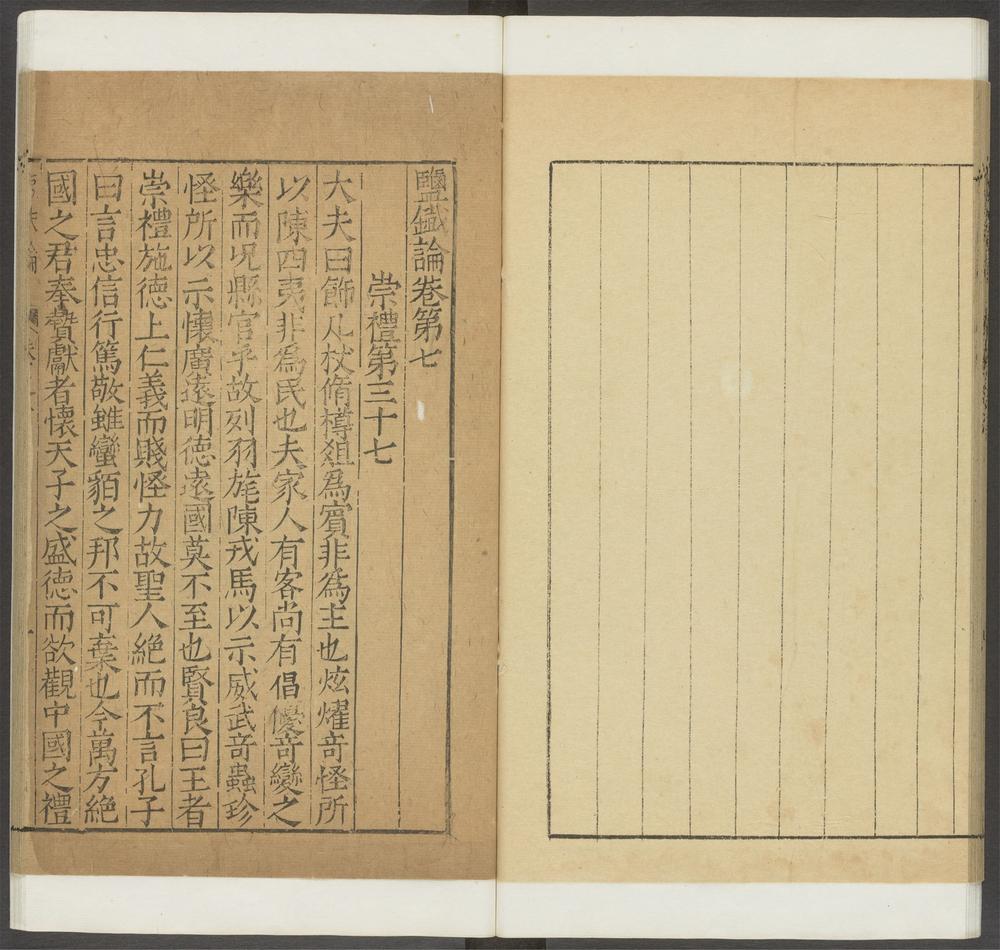 鹽鐵論卷第七
崇禮第三十七
大夫曰飾几杖脩樽爼爲賓非爲主也炫燿竒怪所
以陳四夷非爲民也夫家人有客尚有倡優竒變之
樂而况縣官乎故列羽旄陳戎馬以示威武竒蟲珍
怪所以示懷廣逺明德逺國莫不至也賢良曰王者
崇禮施德上仁義而賤怪力故聖人絶而不言孔子
曰言忠信行篤敬雖蠻貊之邦不可棄也今萬方絶
國之君奉贄獻者懷天子之盛德而欲觀中國之禮